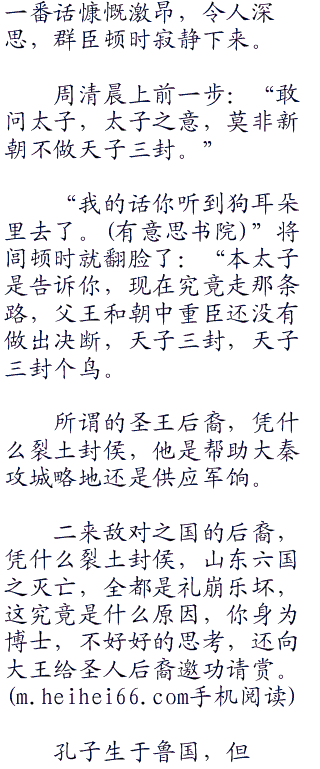 一番话慷慨激昂，令人深
思，群臣顿时寂静下来。
周清晨上前一步：“敢
问太子，太子之意，莫非新
朝不做天子三封。”
“我的话你听到狗耳朵
里去了。(有意思书院)”将
闾顿时就翻脸了：“本太子
是告诉你，现在究竟走那条
路，父王和朝中重臣还没有
做出决断，天子三封，天子
三封个鸟。
所谓的圣王后裔，凭什
么裂土封侯，他是帮助大秦
攻城略地还是供应军饷。
二来敌对之国的后裔，
凭什么裂土封侯，山东六国
之灭亡，全都是礼崩乐坏，
这究竟是什么原因，你身为
博士，不好好的思考，还向
大王给圣人后裔邀功请赏。
(m.heihei66.com手机阅读)
孔子生于鲁国，但